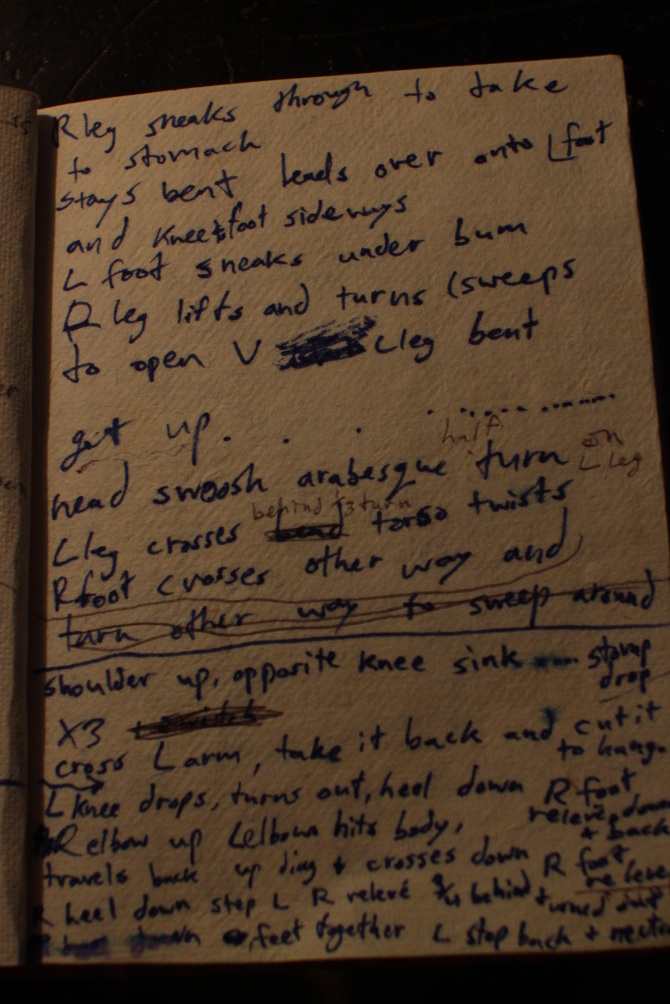 R leg sneaks through to take
to stomach
stays bent leads over onto L foot
and knee & foot sideways
L foot sneaks under bum
R leg lifts and turns (sweeps
to open V L leg bent
get up. . . . . . . . . . . .
head swoosh arabesque half turn on L leg
L leg crosses behind torso twists
R foot crosses other way and
turn other way to sweep around
shoulder up, opposite knee sink .... stomp drop
X3
cross L arm, take it back and cut it to hang
L knee drops, turns out, heel down R foot relevé down + back
R elbow up L elbow hits body,
travels back up diag + crosses down R foot relevé
R heel down step L R relevé behind + turned out
down feet together L step back +